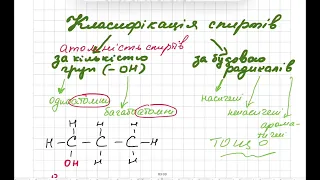 Класифікація спиртів
атомність спиртів
за кількістю за будовою
груп (-ОН) радикалів
одноатомні багатоатомні насичені ненасичені арома-
тичні
тощо
H H H
H-C-C-C-H
OH H H